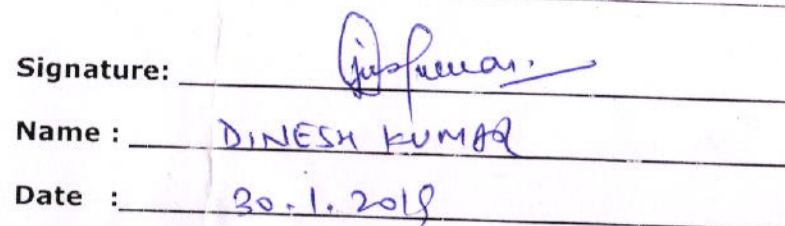 Signature:
Name : DINESH KUMAR
Date : 30.1.2019